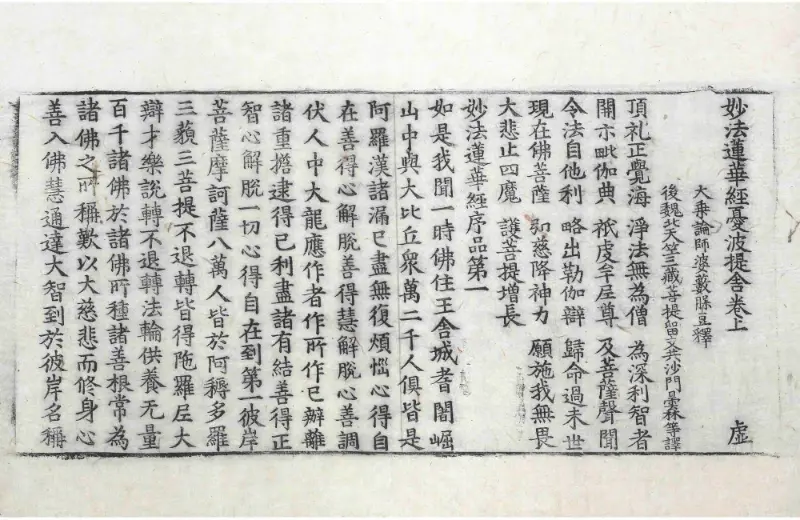 妙法蓮華經憂波提舍卷上 虛
大乗論師婆藪槃豆釋
後魏北天竺三藏菩提留支共沙門曇林等譯
頂礼正覺海 淨法無為僧 為深利智者
開示毗伽典 祇虔牟尼尊 及菩薩聲聞
令法自他利 略出勒伽辯 歸命過未世
現在佛菩薩 弘慈降神力 願施我無畏
大悲止四魔 護菩提增長
妙法蓮華經序品第一
如是我聞一時佛住王舍城耆闍崛
山中與大比丘衆萬二千人俱皆是
阿羅漢諸漏已盡無復煩惱心得自
在善得心解脫善得慧解脫心善調
伏人中大龍應作者作所作已辦離
諸重擔逮得己利盡諸有結善得正
智心解脫一切心得自在到第一彼岸
菩薩摩訶薩八萬人皆於阿耨多羅
三藐三菩提不退轉皆得陁羅尼大
辯才樂說轉不退轉法輪供養无量
百千諸佛於諸佛所種諸善根常為
諸佛之所稱歎以大慈悲而修身心
善入佛慧通達大智到於彼岸名稱